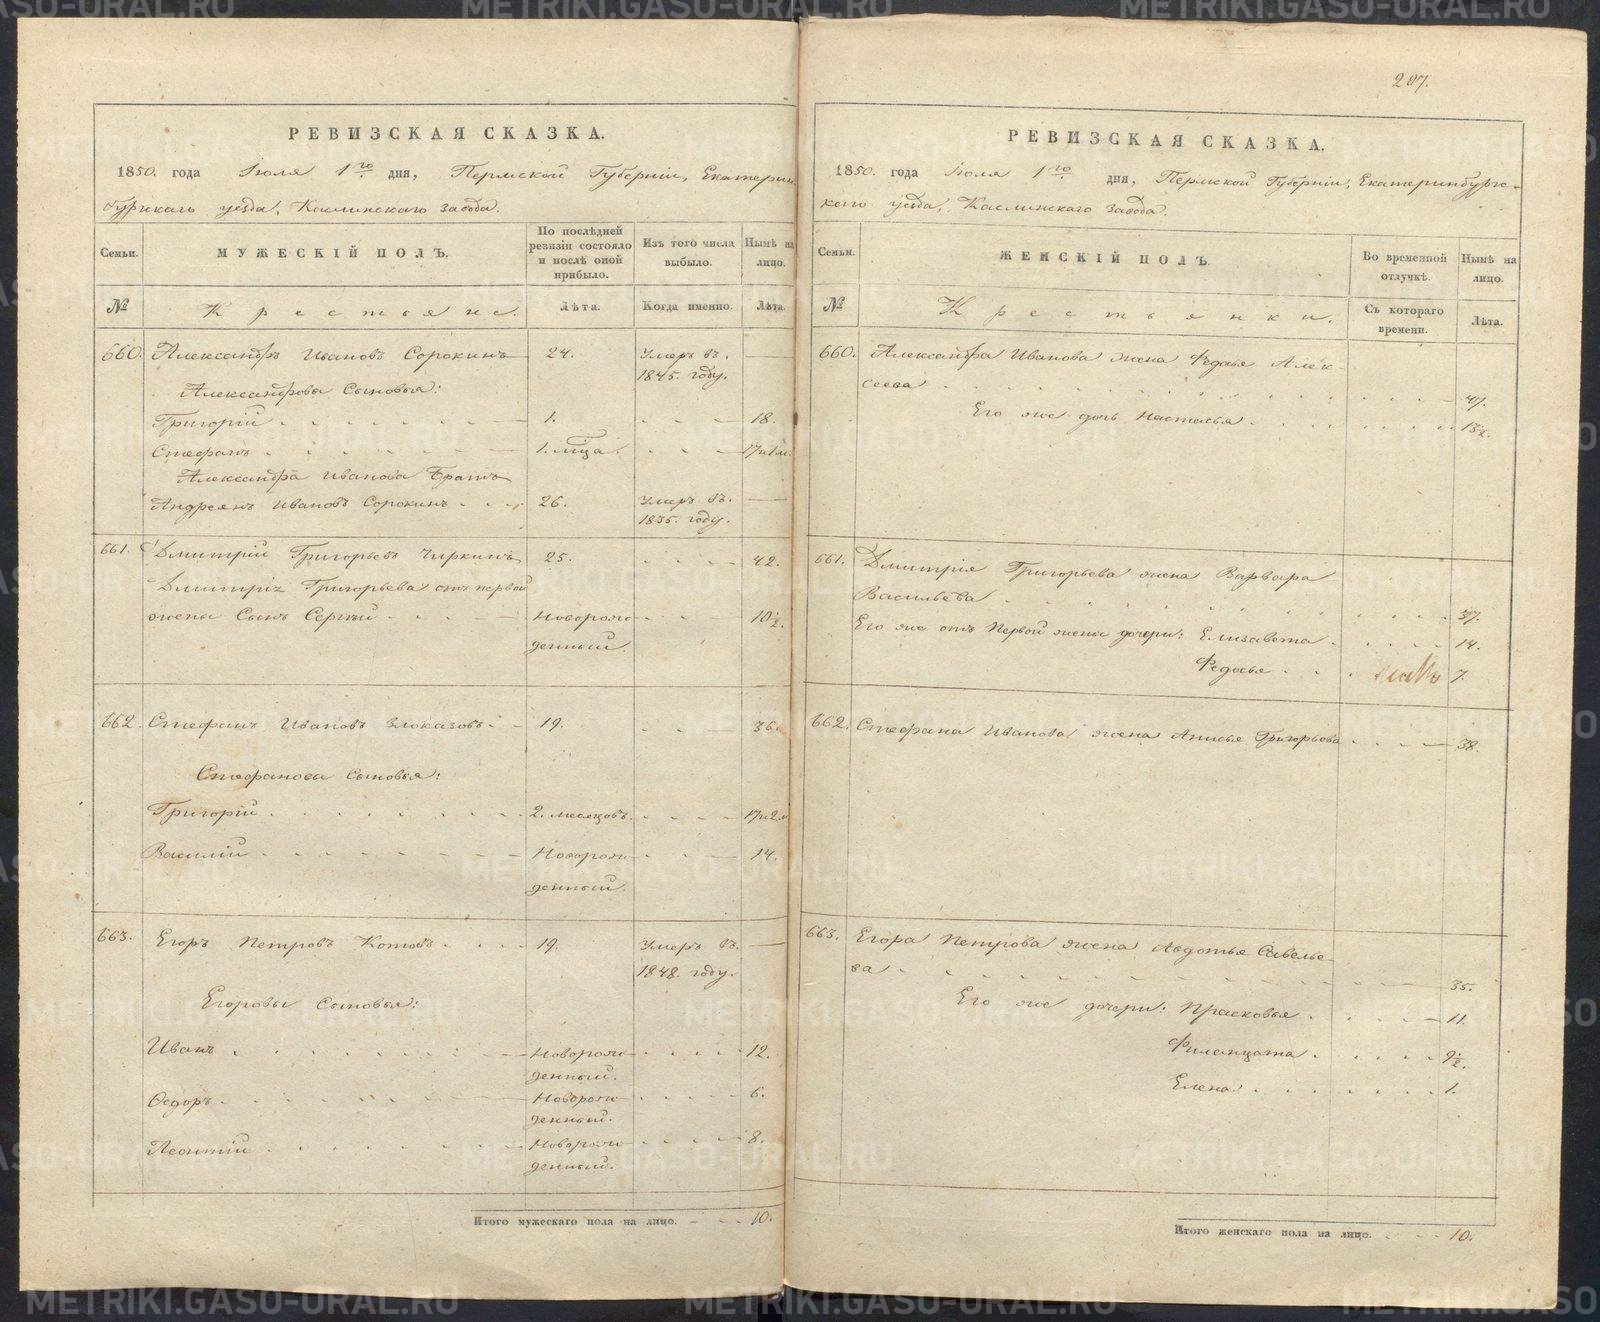 207.
РЕВИЗСКАЯ СКАЗКА.
1850. года Іюля 1го дня, Пермской Губерніи, Екатерин
бургскаго уезда, Каслинскаго Завода.
Семьи. МУЖЕСКІЙ ПОЛЪ. По послѣдней ревизіи состояло и послѣ оной прибыло. Изъ того числа выбыло. Нынѣ на лицо.
№ Крестьяне. Лѣта. Когда именно. Лѣта.
660. Александръ Ивановъ Сорокинъ 24. Умеръ въ
1845. году.
Александровы Сыновья:
Григорій 1. 18.
Стефанъ 1. мца. 17 и 1 м.
Александра Иванова Братъ
Андреянъ Ивановъ Сорокинъ 26. Умеръ въ.
1835. году.
661. Дмитрій Григорьевъ Чиркинъ 25. 42.
Дмитрія Григорьева отъ первой
жены Сынъ Сергѣй Новорож- 10½.
денный.
662. Стефанъ Ивановъ Злоказовъ 19. 36.
Стефановы Сыновья:
Григорій 2. месецовъ. 17 и 2 м
Василій Новорож- 14.
денный.
663. Егоръ Петровъ Котовъ 19. Умеръ въ.
1848. году.
Егоровы Сыновья:
Иванъ Новорож- 12.
денный.
Ѳедоръ Новорож- 6.
денный.
Леонтій Новорож- 8.
денный.
Итого мужескаго пола на лицо. 10.
РЕВИЗСКАЯ СКАЗКА.
1850. года Іюля 1го дня, Пермской Губерніи, Екатеринбургс-
каго уезда, Каслинскаго Завода.
Семьи. ЖЕНСКІЙ ПОЛЪ. Во временной отлучкѣ. Нынѣ на лицо.
№ Крестьянки. Съ котораго времени. Лѣта.
660. Александра Иванова жена Федосья Алек-
сеева 47.
Его же дочь Настасья 13½.
661. Дмитрія Григорьева жена Варвара
Васильева 37.
Его же отъ Первой жены дочери: Елизавета 14.
Федосья 7.
662. Стефана Иванова жена Анисья Григорьева 38.
663. Егора Петрова жена Авдотья Савелье-
ва 35.
Его же дочери: Прасковья 11.
Филанцата 9½.
Елена 1.
Итого женскаго пола на лицо. 10.
METRIKI.GASO-URAL.RU